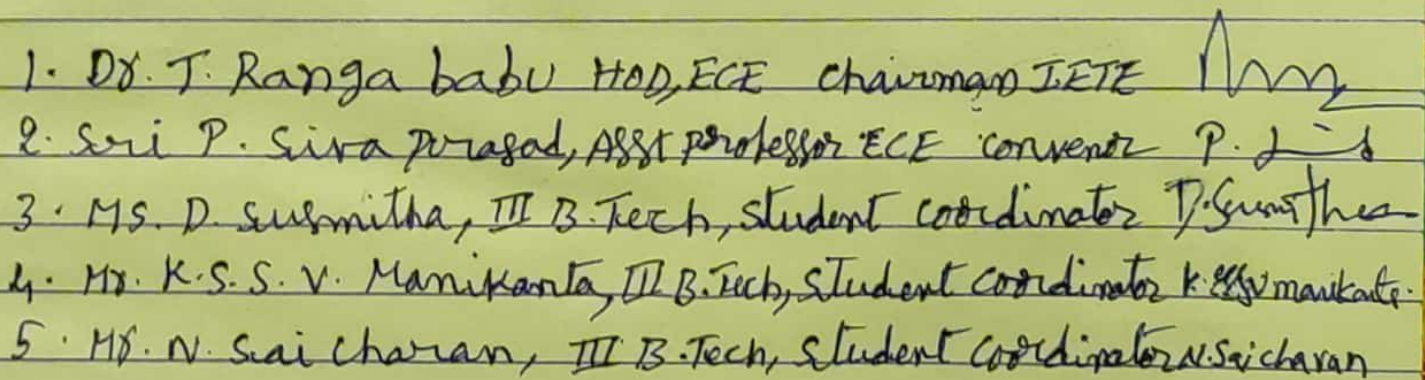 1. Dr. T. Ranga babu HOD, ECE Chairman IETE
2. Sri P. Siva prasad, Asst professor ECE convenor P.
3. Ms. D. susmitha, III B.Tech, student coordinator D.Susmitha
4. Mr. K.S.S.V. Manikanta, III B.Tech, Student coordinator K.SSV manikanta.
5. Mr. N. Sai charan, III B.Tech, Student coordinator N.Sai charan